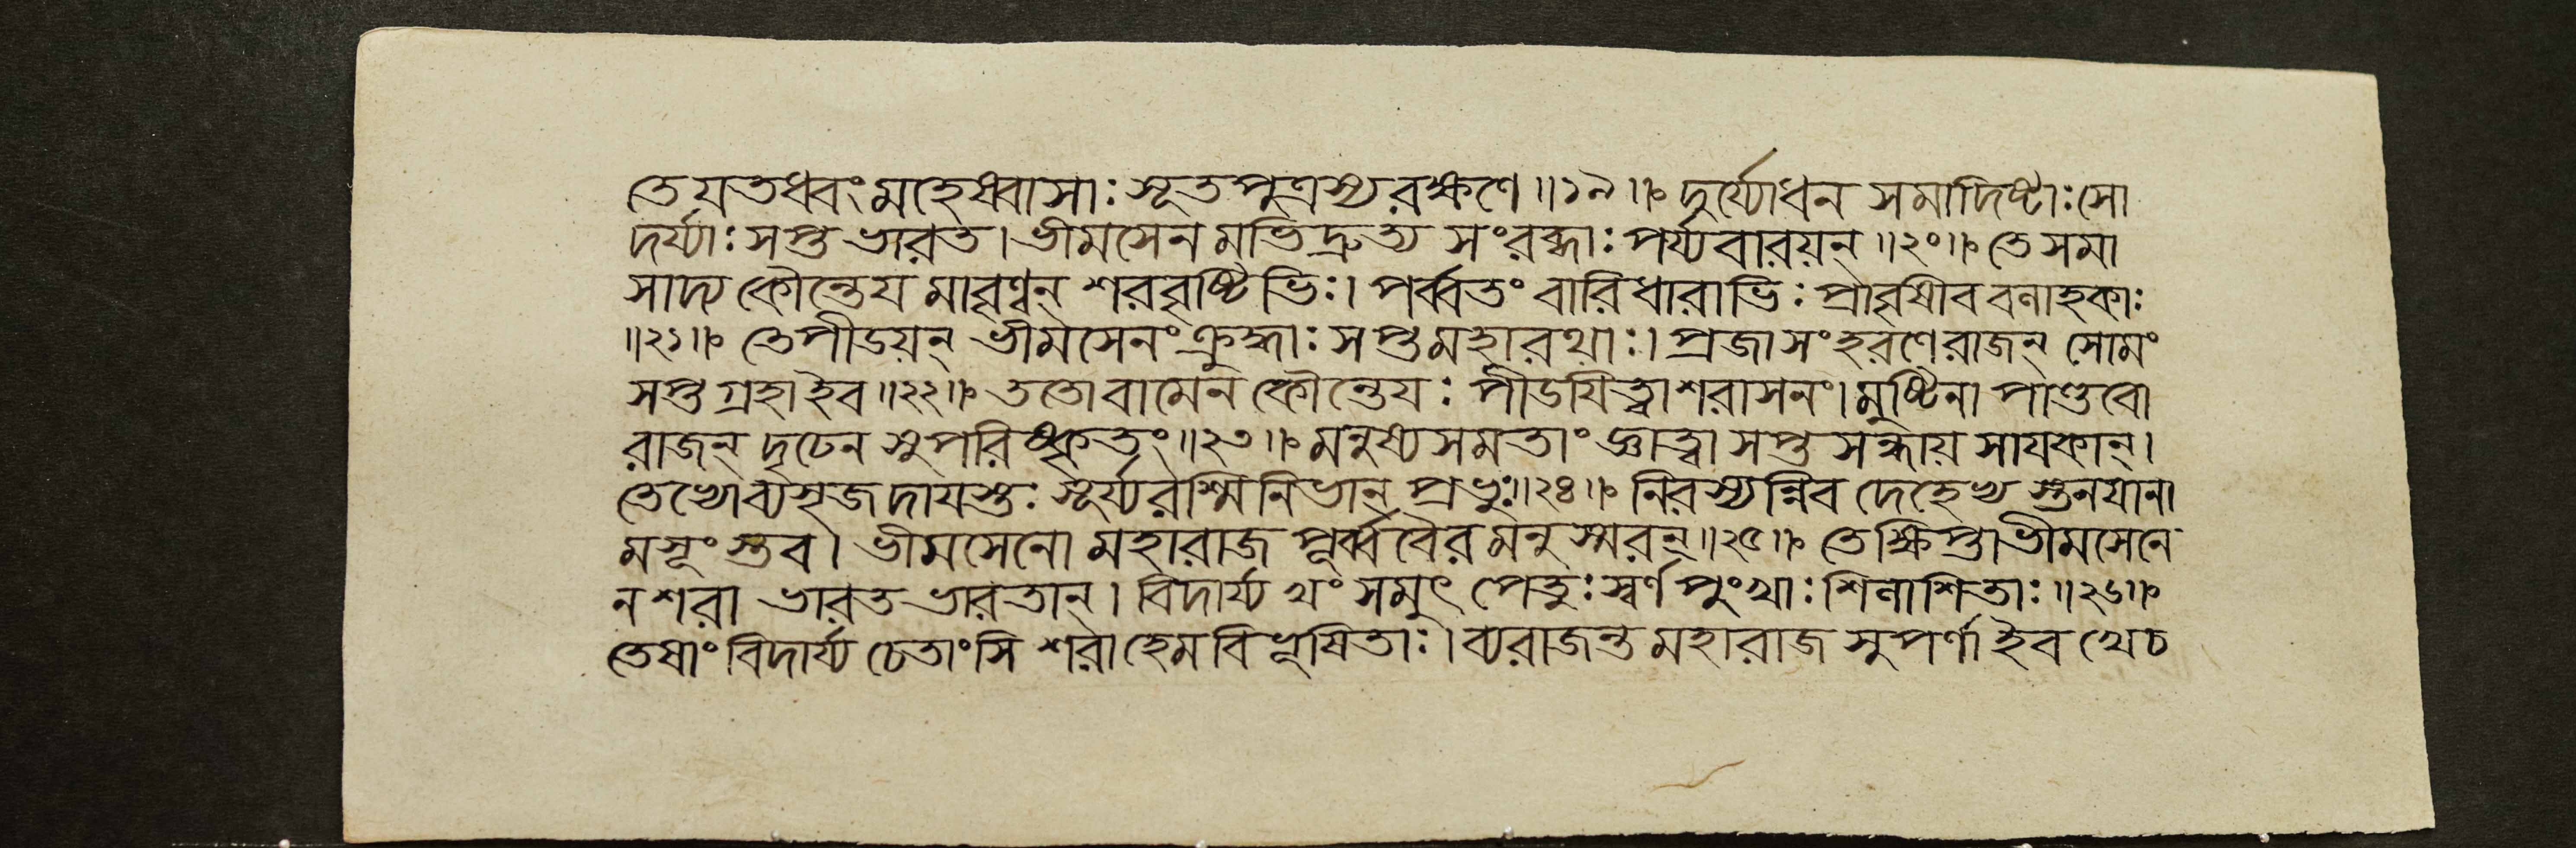 তে যতধ্বং মহেষ্বাসাঃ সূতপুত্রস্য রক্ষণে ॥১৯॥ দুর্য্যোধন সমাদিষ্টাঃ সো
দর্য্যাঃ সপ্ত ভারত। ভীমসেন মভিদ্রুত্য সংরব্ধাঃ পর্য্যবারয়ন্ ॥২০॥ তে সমা
সাদ্য কৌন্তেয মাবৃণ্বন্ শরবৃষ্টিভিঃ। পর্ব্বতং বারিধারাভিঃ প্রাবৃষীব বলাহকাঃ
॥২১॥ তেপীডয়ন্ ভীমসেনং ক্রুদ্ধাঃ সপ্তমহারথাঃ। প্রজাসংহরণে রাজন্ সোমং
সপ্ত গ্রহা ইব ॥২২॥ ততো বামেন কৌন্তেযঃ পীডযিত্বা শরাসনং। মুষ্টিনা পাণ্ডবো
রাজন্ দৃঢেন সুপরিষ্কৃতং ॥২৩॥ মনুষ্যসমতাং জ্ঞাত্বা সপ্ত সন্ধায় সাযকান্।
তেভ্যো ব্যসৃজদাযস্তঃ সূর্য্যরশ্মিনিভান্ প্রভুঃ॥২৪॥ নিরস্যন্নিব দেহেভ্য স্তনযানা
মসূংস্তব। ভীমসেনো মহারাজ পূর্ব্ববৈরমনুস্মরন্ ॥২৫॥ তে ক্ষিপ্তা ভীমসেনে
ন শরা ভারত ভারতান্। বিদার্য্য খং সমুৎপেতুঃ স্বর্ণপুংখাঃ শিলাশিতাঃ ॥২৬॥
তেষাং বিদার্য্য চেতাংসি শরা হেমবিভূষিতাঃ। ব্যরাজন্ত মহারাজ সুপর্ণা ইব খেচ